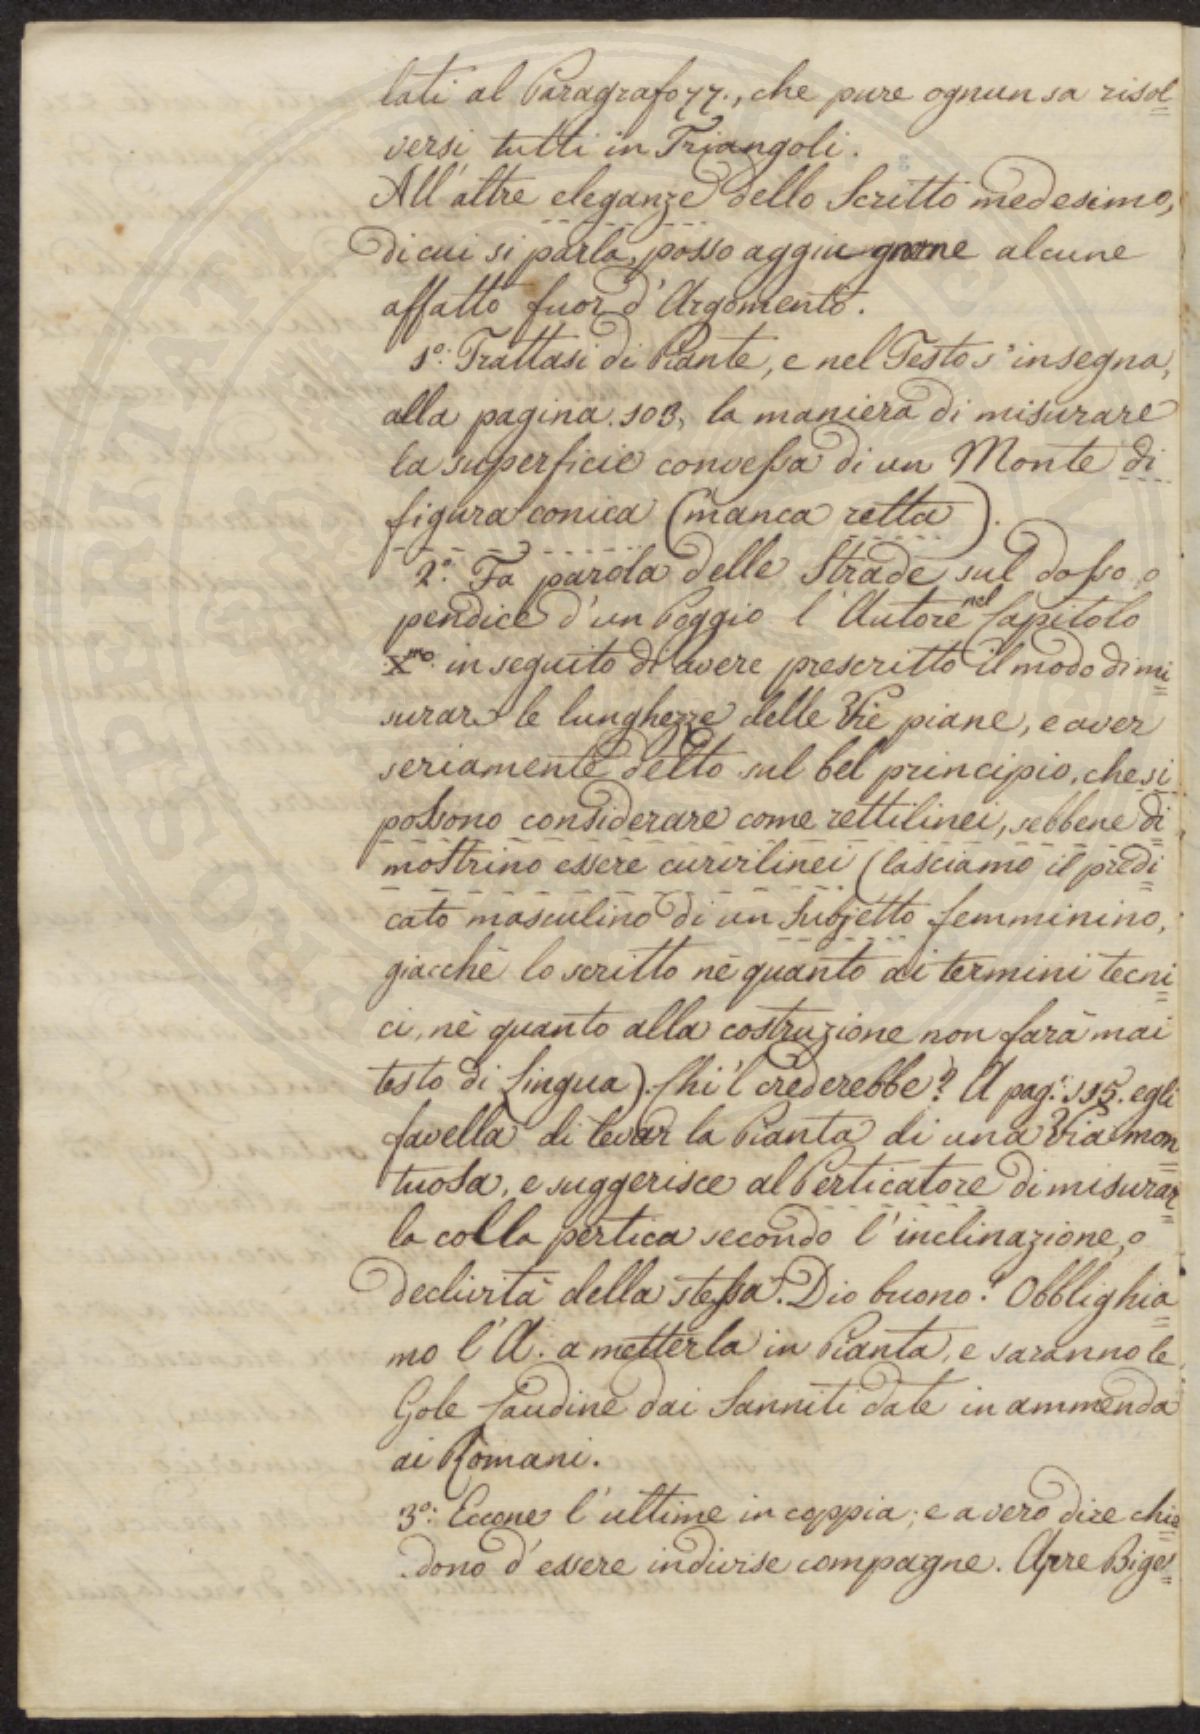 lati al Paragrafo 77., che pure ognun sa risol=
versi tutti in Triangoli.
All'altre eleganze dello Scritto medesimo,
di cui si parla, posso aggiugnerne alcune
affatto fuor d'Argomento.
1º: Trattasi di Piante, e nel Testo s'insegna,
alla pagina. 103, la maniera di misurare
la superficie convessa di un Monte di
figura conica (manca retta).
2º: Fa parola delle Strade sul dosso, o
pendice d'un Poggio l'Autore nel Capitolo
Xmo. in seguito di avere prescritto il modo di mi=
surare le lunghezze delle Vie piane, e aver
seriamente detto sul bel principio, che si
possono considerare come rettilinei, sebbene di=
mostrino essere curvilinei (lasciamo il predi=
cato masculino di un Subjetto femminino,
giacchè lo scritto nè quanto ai termini tecni=
ci, nè quanto alla costruzione non farà mai
testo di Lingua). Chi 'l crederebbe? A pag: 115. egli
favella di levar la Pianta di una Via mon=
tuosa, e suggerisce al Perticatore di misurar=
la colla pertica secondo l'inclinazione, o
declività della stessa. Dio buono! Obblighia=
mo l'A. a metterla in Pianta, e saranno le
Gole Caudine dai Sanniti date in ammenda
ai Romani.
3º: Eccone l'ultime in coppia; e a vero dire chie=
dono d'essere indivise compagne. Apre Biges=
PROSPERITATI PUBLICAE